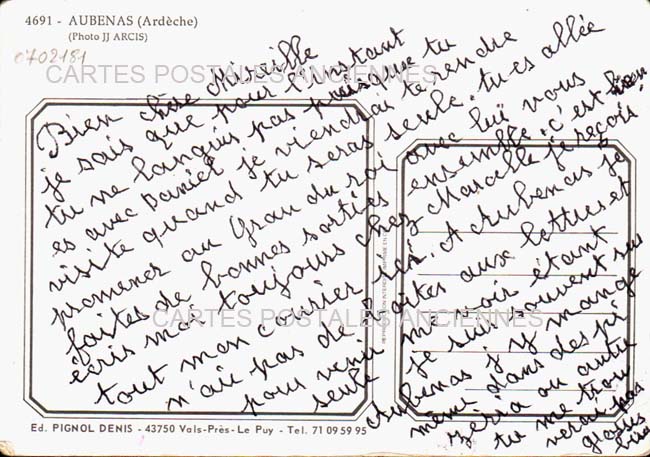 4691 - AUBENAS (Ardèche)
(Photo JJ ARCIS)
0702181
CARTES POSTALES ANCIENNES
Bien chère Mireille
je sais que pour l'instant
tu ne languis pas puisque tu
es avec Daniel je viendrai te rendre
visite quand tu seras seule. tu es allée
promener au Grau du roi avec lui vous
faites de bonnes sorties ensemble. c'est bien
écris moi toujours chez Marcelle je reçois
tout mon courrier ici. A Aubenas je
n'ai pas de boites aux lettres et
pour venir me voir étant
seule je suis souvent sur
Aubenas j'y mange
même dans des pi
zéria ou autre
tu me trou
verai pas
CARTES POSTALES ANCIENNES
Ed. PIGNOL DENIS - 43750 Vals-Près-Le Puy - Tel. 71 09 59 95